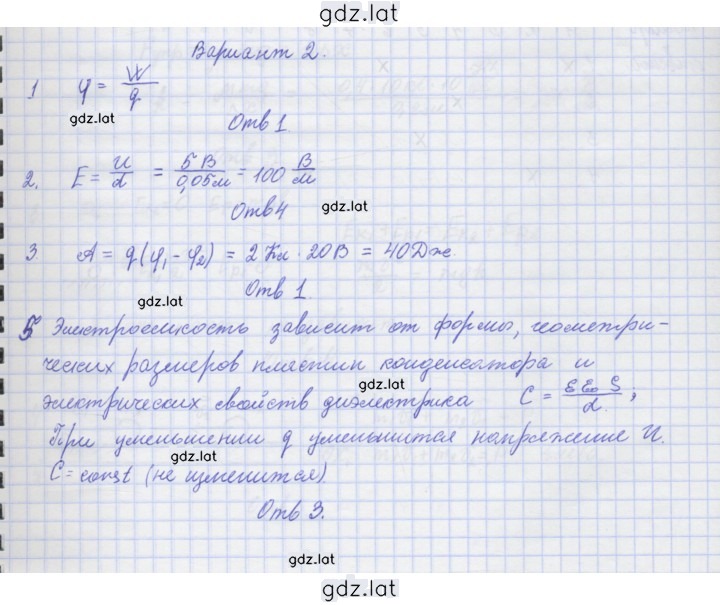 gdz.lat
Вариант 2.
1 φ = W/q
gdz.lat
Отв 1
2. E = U/d = 5 В/0,05 м = 100 В/м
gdz.lat
Отв 4
3 A = q(φ₁ - φ₂) = 2 Кл · 20 В = 40 Дж.
Отв 1.
gdz.lat
5 Электроемкость зависит от формы, геометри-
ческих размеров пластин конденсатора и
gdz.lat
электрических свойств диэлектрика C = εε₀S/d;
При уменьшении q уменьшится напряжение U.
gdz.lat
C = const (не изменится).
Отв 3.
gdz.lat
gdz.lat